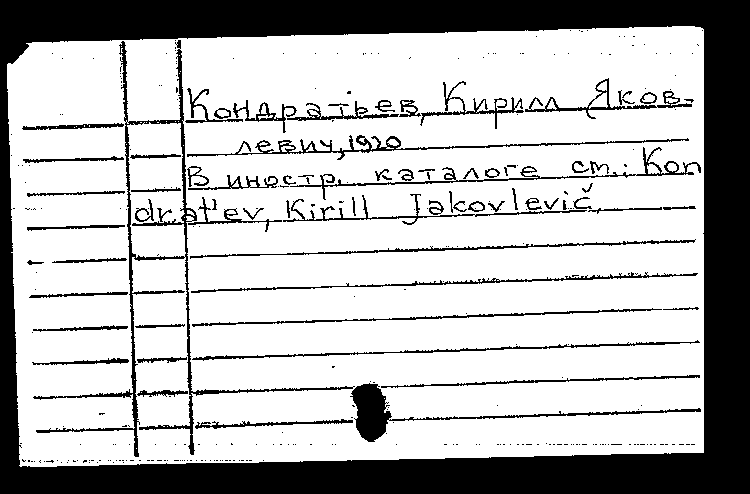 Кондратьев, Кирилл Яков-
левич, 1920
В иностр. каталоге см.: Kon
drat'ev, Kirill Jakovlevič.